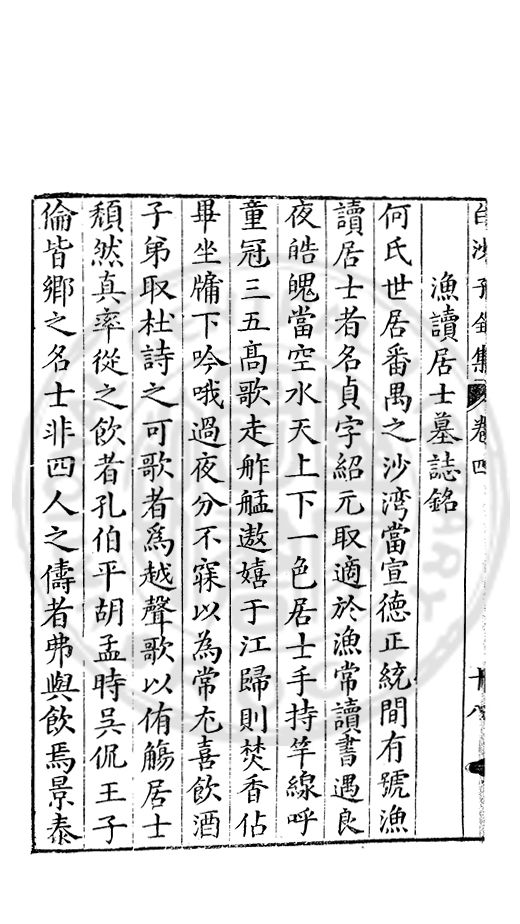 白沙子全集 卷四 十八
漁讀居士墓誌銘
何氏世居番禺之沙湾當宣德正統間有號漁
讀居士者名貞字紹元取適於漁常讀書遇良
夜皓魄當空水天上下一色居士手持竿線呼
童冠三五髙歌走舴艋遨嬉于江歸則焚香佔
畢坐牗下吟哦過夜分不寐以為常尤喜飲酒
子弟取杜詩之可歌者爲越聲歌以侑觴居士
頽然真率從之飲者孔伯平胡孟時吳侃王子
倫皆鄉之名士非四人之儔者弗與飲焉景泰